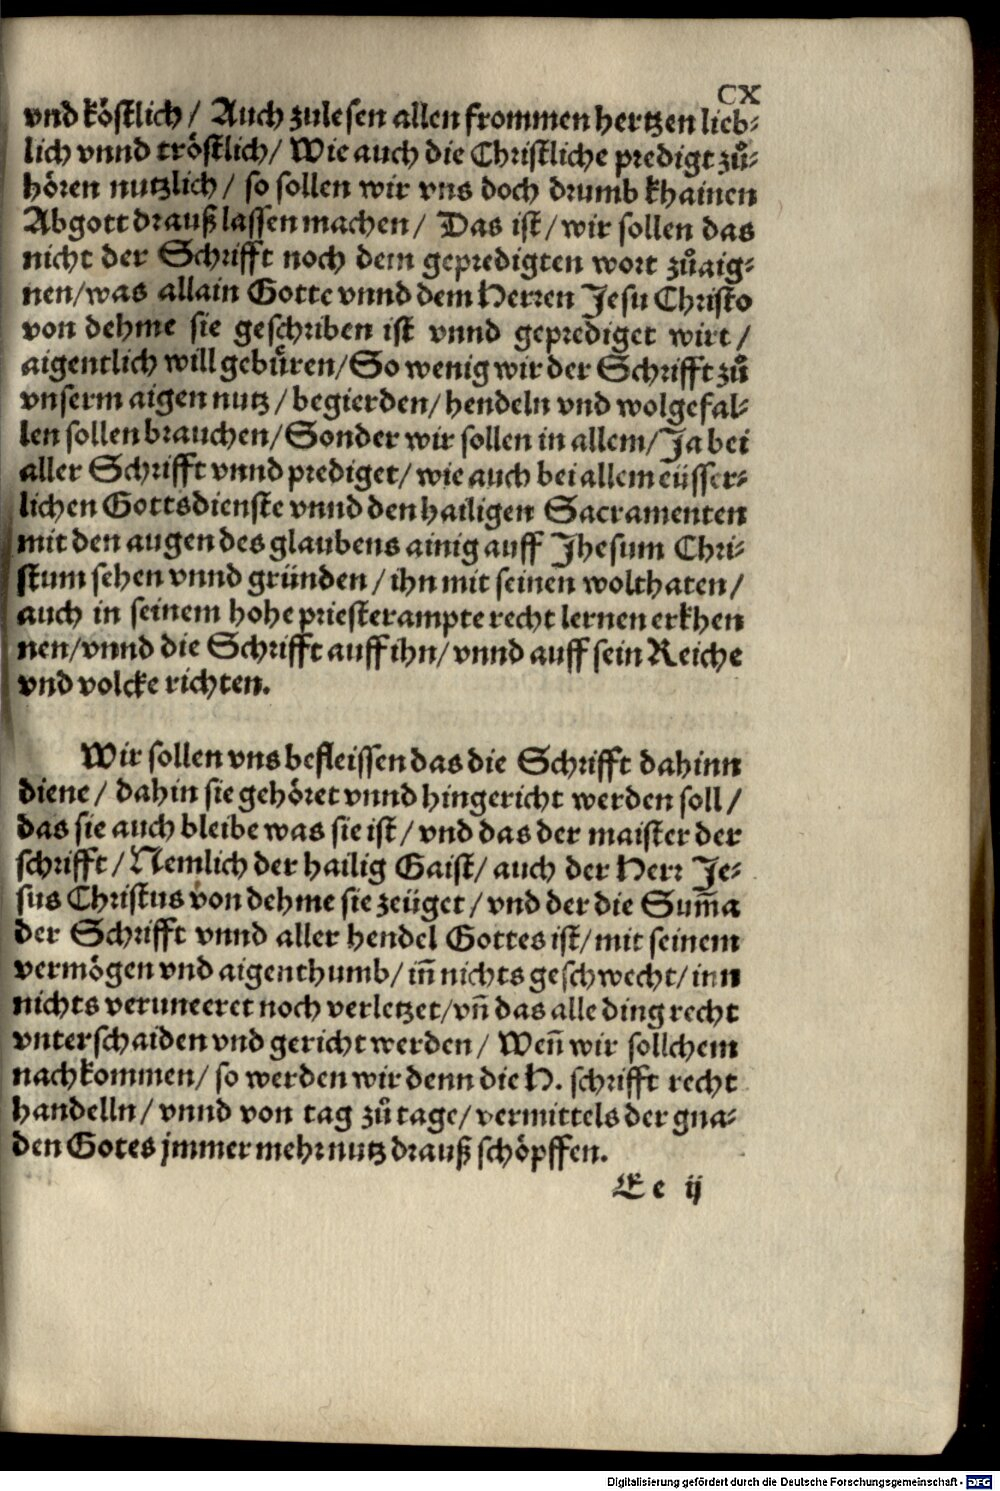 CX
vnd köstlich / Auch zulesen allen frommen hertzen lieb⸗
lich vnnd tröstlich / Wie auch die Christliche predigt zů⸗
hören nutzlich / so sollen wir vns doch drumb khainen
Abgott drauß lassen machen / Das ist / wir sollen das
nicht der Schrifft noch dem gepredigten wort zůaig⸗
nen / was allain Gotte vnnd dem Herren Jesu Christo
von dehme sie geschriben ist vnnd geprediget wirt /
aigentlich will gebüren / So wenig wir der Schrifft zů
vnserm aigen nutz / begierden / hendeln vnd wolgefal⸗
len sollen brauchen / Sonder wir sollen in allem / Ja bei
aller Schrifft vnnd prediget / wie auch bei allem eüsser⸗
lichen Gottsdienste vnnd den hailigen Sacramenten
mit den augen des glaubens ainig auff Jhesum Chri⸗
stum sehen vnnd gründen / ihn mit seinen wolthaten /
auch in seinem hohe priesterampte recht lernen erkhen
nen / vnnd die Schrifft auff ihn / vnnd auff sein Reiche
vnd volcke richten.
Wir sollen vns befleissen das die Schrifft dahinn
diene / dahin sie gehöret vnnd hingericht werden soll /
das sie auch bleibe was sie ist / vnd das der maister der
schrifft / Nemlich der hailig Gaist / auch der Herr Je⸗
sus Christus von dehme sie zeüget / vnd der die Sum̃a
der Schrifft vnnd aller hendel Gottes ist / mit seinem
vermögen vnd aigenthumb / in̄ nichts geschwecht / inn
nichts veruneeret noch verletzet / vn̄ das alle ding recht
vnterschaiden vnd gericht werden / Wen̄ wir sollchem
nachkommen / so werden wir denn die H. schrifft recht
handelln / vnnd von tag zů tage / vermittels der gna⸗
den Gotes jmmer mehr nutz drauß schöpffen.
Ee ij
Digitalisierung gefördert durch die Deutsche Forschungsgemeinschaft - DFG